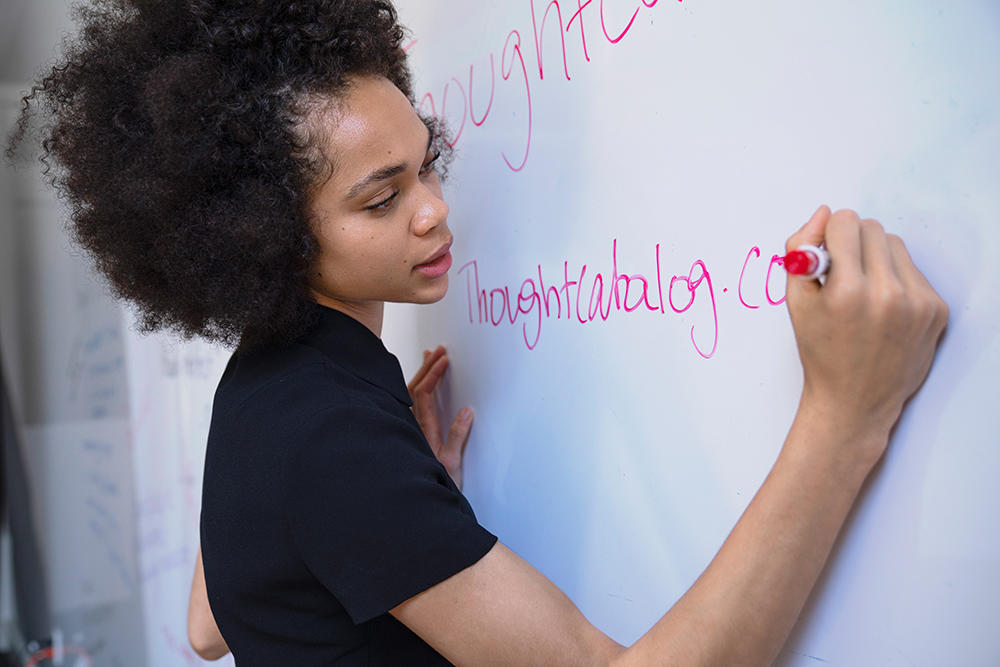 Thoughtca
Thoughtcabalog.co